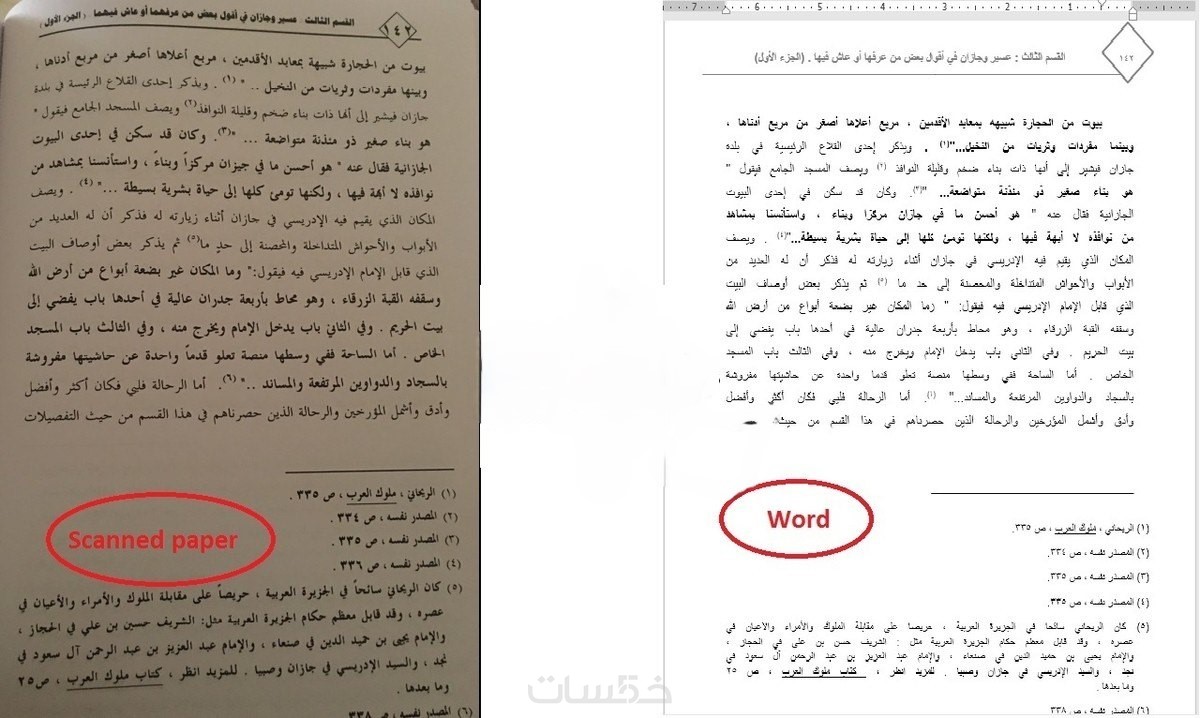 القسم الثالث : عسير وجازان في أقول بعض من عرفهما أو عاش فيهما ( الجزء الأول )
١٤٢
بيوت من الحجارة شبيهة بمعابد الأقدمين ، مربع أعلاها أصغر من مربع أدناها ،
وبينها مفردات وثريات من النخيل .. " (١) . ويذكر إحدى القلاع الرئيسة في بلدة
جازان فيشير إلى أنها ذات بناء ضخم وقليلة النوافذ(٢) ويصف المسجد الجامع فيقول "
هو بناء صغير ذو مئذنة متواضعة ... "(٣). وكان قد سكن في إحدى البيوت
الجازانية فقال عنه " هو أحسن ما في جيزان مركزاً وبناءً ، واستأنسنا بمشاهد من
نوافذه لا أبهة فيها ، ولكنها تومئ كلها إلى حياة بشرية بسيطة ..." (٤) . ويصف
المكان الذي يقيم فيه الإدريسي في جازان أثناء زيارته له فذكر أن له العديد من
الأبواب والأحواش المتداخلة والمحصنة إلى حدٍ ما(٥) ثم يذكر بعض أوصاف البيت
الذي قابل الإمام الإدريسي فيه فيقول:" وما المكان غير بضعة أبواع من أرض الله
وسقفه القبة الزرقاء ، وهو محاط بأربعة جدران عالية في أحدها باب يفضي إلى
بيت الحريم . وفي الثاني باب يدخل الإمام ويخرج منه ، وفي الثالث باب المسجد
الخاص . أما الساحة ففي وسطها منصة تعلو قدماً واحدة عن حاشيتها مفروشة
بالسجاد والدواوين المرتفعة والمساند .." (٦). أما الرحالة فلبي فكان أكثر وأفضل
وأدق وأشمل المؤرخين والرحالة الذين حصرناهم في هذا القسم من حيث التفصيلات
(١) الريحاني ، ملوك العرب ، ص ٣٣٥ .
(٢) المصدر نفسه ، ص ٣٣٤ .
(٣) المصدر نفسه ، ص ٣٣٥ .
(٤) المصدر نفسه ، ص ٣٣٦ .
(٥) كان الريحاني سائحاً في الجزيرة العربية ، حريصاً على مقابلة الملوك والأمراء والأعيان في
عصره ، وقد قابل معظم حكام الجزيرة العربية مثل: الشريف حسين بن علي في الحجاز ،
والإمام يحيى بن حميد الدين في صنعاء ، والإمام عبد العزيز بن عبد الرحمن آل سعود في
نجد ، والسيد الإدريسي في جازان وصبيا . للمزيد انظر ، كتاب ملوك العرب ، ص٢٥
وما بعدها .
(٦) المصدر نفسه ، ص ٣٣٨ .
Scanned paper
7 6 5 4 3 2 1 1
القسم الثالث : عسير وجازان في أقول بعض من عرفها أو عاش فيها . (الجزء الأول)
١٤٢
بيوت من الحجارة شبيهه بمعابد الأقدمين ، مربع أعلاها أصغر من مربع أدناها ،
وبينما مفردات وثريات من النخيل..."(١) . ويذكر إحدى القلاع الرئيسية في بلده
جازان فيشير إلى أنها ذات بناء ضخم وقليلة النوافذ (٢) ويصف المسجد الجامع فيقول "
هو بناء صغير ذو مئذنة متواضعة... "(٣). وكان قد سكن في إحدى البيوت
الجازانية فقال عنه " هو أحسن ما في جازان مركزا وبناء ، واستأنسنا بمشاهد
من نوافذه لا أبهة فيها ، ولكنها تومئ كلها إلى حياة بشرية بسيطة..."(٤) . ويصف
المكان الذي يقيم فيه الإدريسي في جازان أثناء زيارته له فذكر أن له العديد من
الأبواب والأحواش المتداخلة والمحصنة إلى حد ما (٥) ثم يذكر بعض أوصاف البيت
الذي قابل الإمام الإدريسي فيه فيقول: " زما المكان غير بضعة أبواع من أرض الله
وسقفه القبة الزرقاء ، وهو محاط بأربعة جدران عالية في أحدها باب يفضي إلى
بيت الحريم . وفي الثاني باب يدخل الإمام ويخرج منه ، وفي الثالث باب المسجد
الخاص . أما الساحة ففي وسطها منصة تعلو قدما واحده عن حاشيتها مفروشة
بالسجاد والدواوين المرتفعة والمساند..." (٦). أما الرحالة فلبي فكان أكثر وأفضل
وأدق وأشمل المؤرخين والرحالة الذين حصرناهم في هذا القسم من حيث
(١) الريحاني ، ملوك العرب ، ص ٣٣٥.
(٢) المصدر نفسه ، ص ٣٣٤.
(٣) المصدر نفسه ، ص ٣٣٥.
(٤) المصدر نفسه ، ص ٣٣٥.
(٥) كان الريحاني سائحا في الجزيرة العربية ، حريصا على مقابلة الملوك والأمراء والأعيان في
عصره ، وقد قابل معظم حكام الجزيرة العربية مثل : الشريف حسن بن على في الحجاز ،
والإمام يحيى بن حميد الدين في صنعاء ، والإمام عبد العزيز بن عبد الرحمن آل سعود في
نجد ، والسيد الإدريسي في جازان وصبيا . للمزيد انظر ، كتاب ملوك العرب ، ص ٢٥
وما بعدها .
(٦) المصدر نفسه ، ص ٣٣٨
Word
خمسات